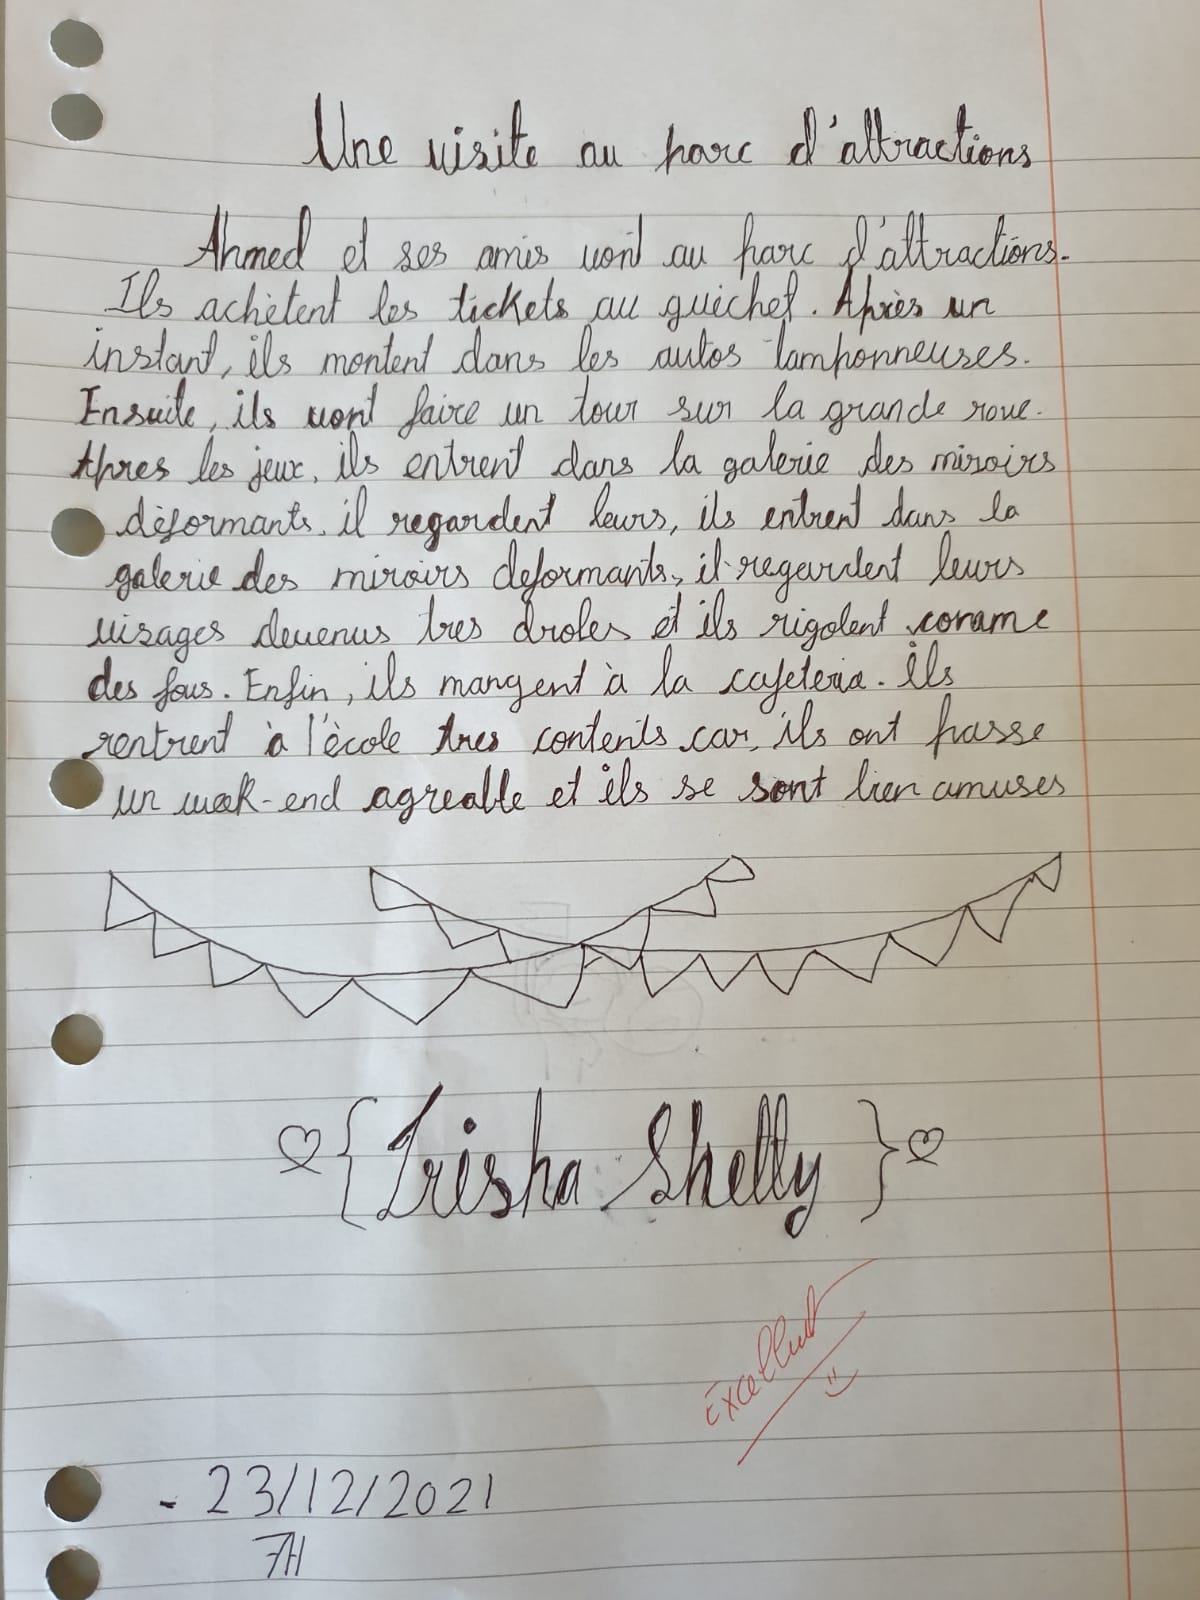 Une visite au parc d'attractions
Ahmed et ses amis vont au parc d'attractions.
Ils achètent les tickets au guichet. Après un
instant, ils montent dans les autos tamponneuses.
Ensuite, ils vont faire un tour sur la grande roue.
Apres les jeux, ils entrent dans la galerie des miroirs
dèformants, il regardent leurs, ils entrent dans la
galerie des miroirs deformants, il regardent leurs
visages devenus tres droles et ils rigolent comme
des fous. Enfin, ils mangent à la cafeteria. Ils
rentrent à l'ècole tres contents car, ils ont passe
un week-end agreable et ils se sont bien amuses
{Trisha Shelly}
Excellent
- 23/12/2021
7H